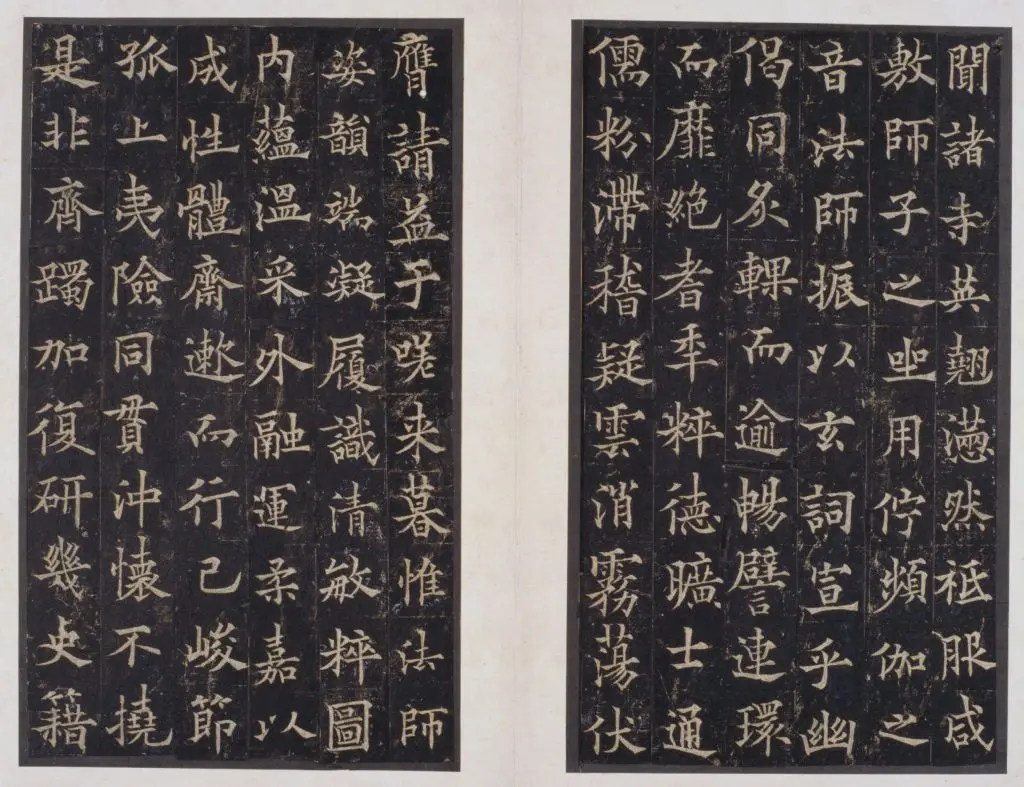 聞諸寺英翹懣然祗服咸
敷師子之坐用佇頻伽之
音法師振以玄詞宣乎幽
偈同炙輠而逾暢譬連環
而靡絕耆年粹德曠士通
儒粉滯稽疑雲消霧蕩伏
膺請益于嗟来暮惟法師
姿韻端凝履識清敏粹圖
内蘊溫采外融運柔嘉以
成性體齋遬而行己峻節
孤上夷險同貫沖懷不撓
是非齊躅加復研幾史籍